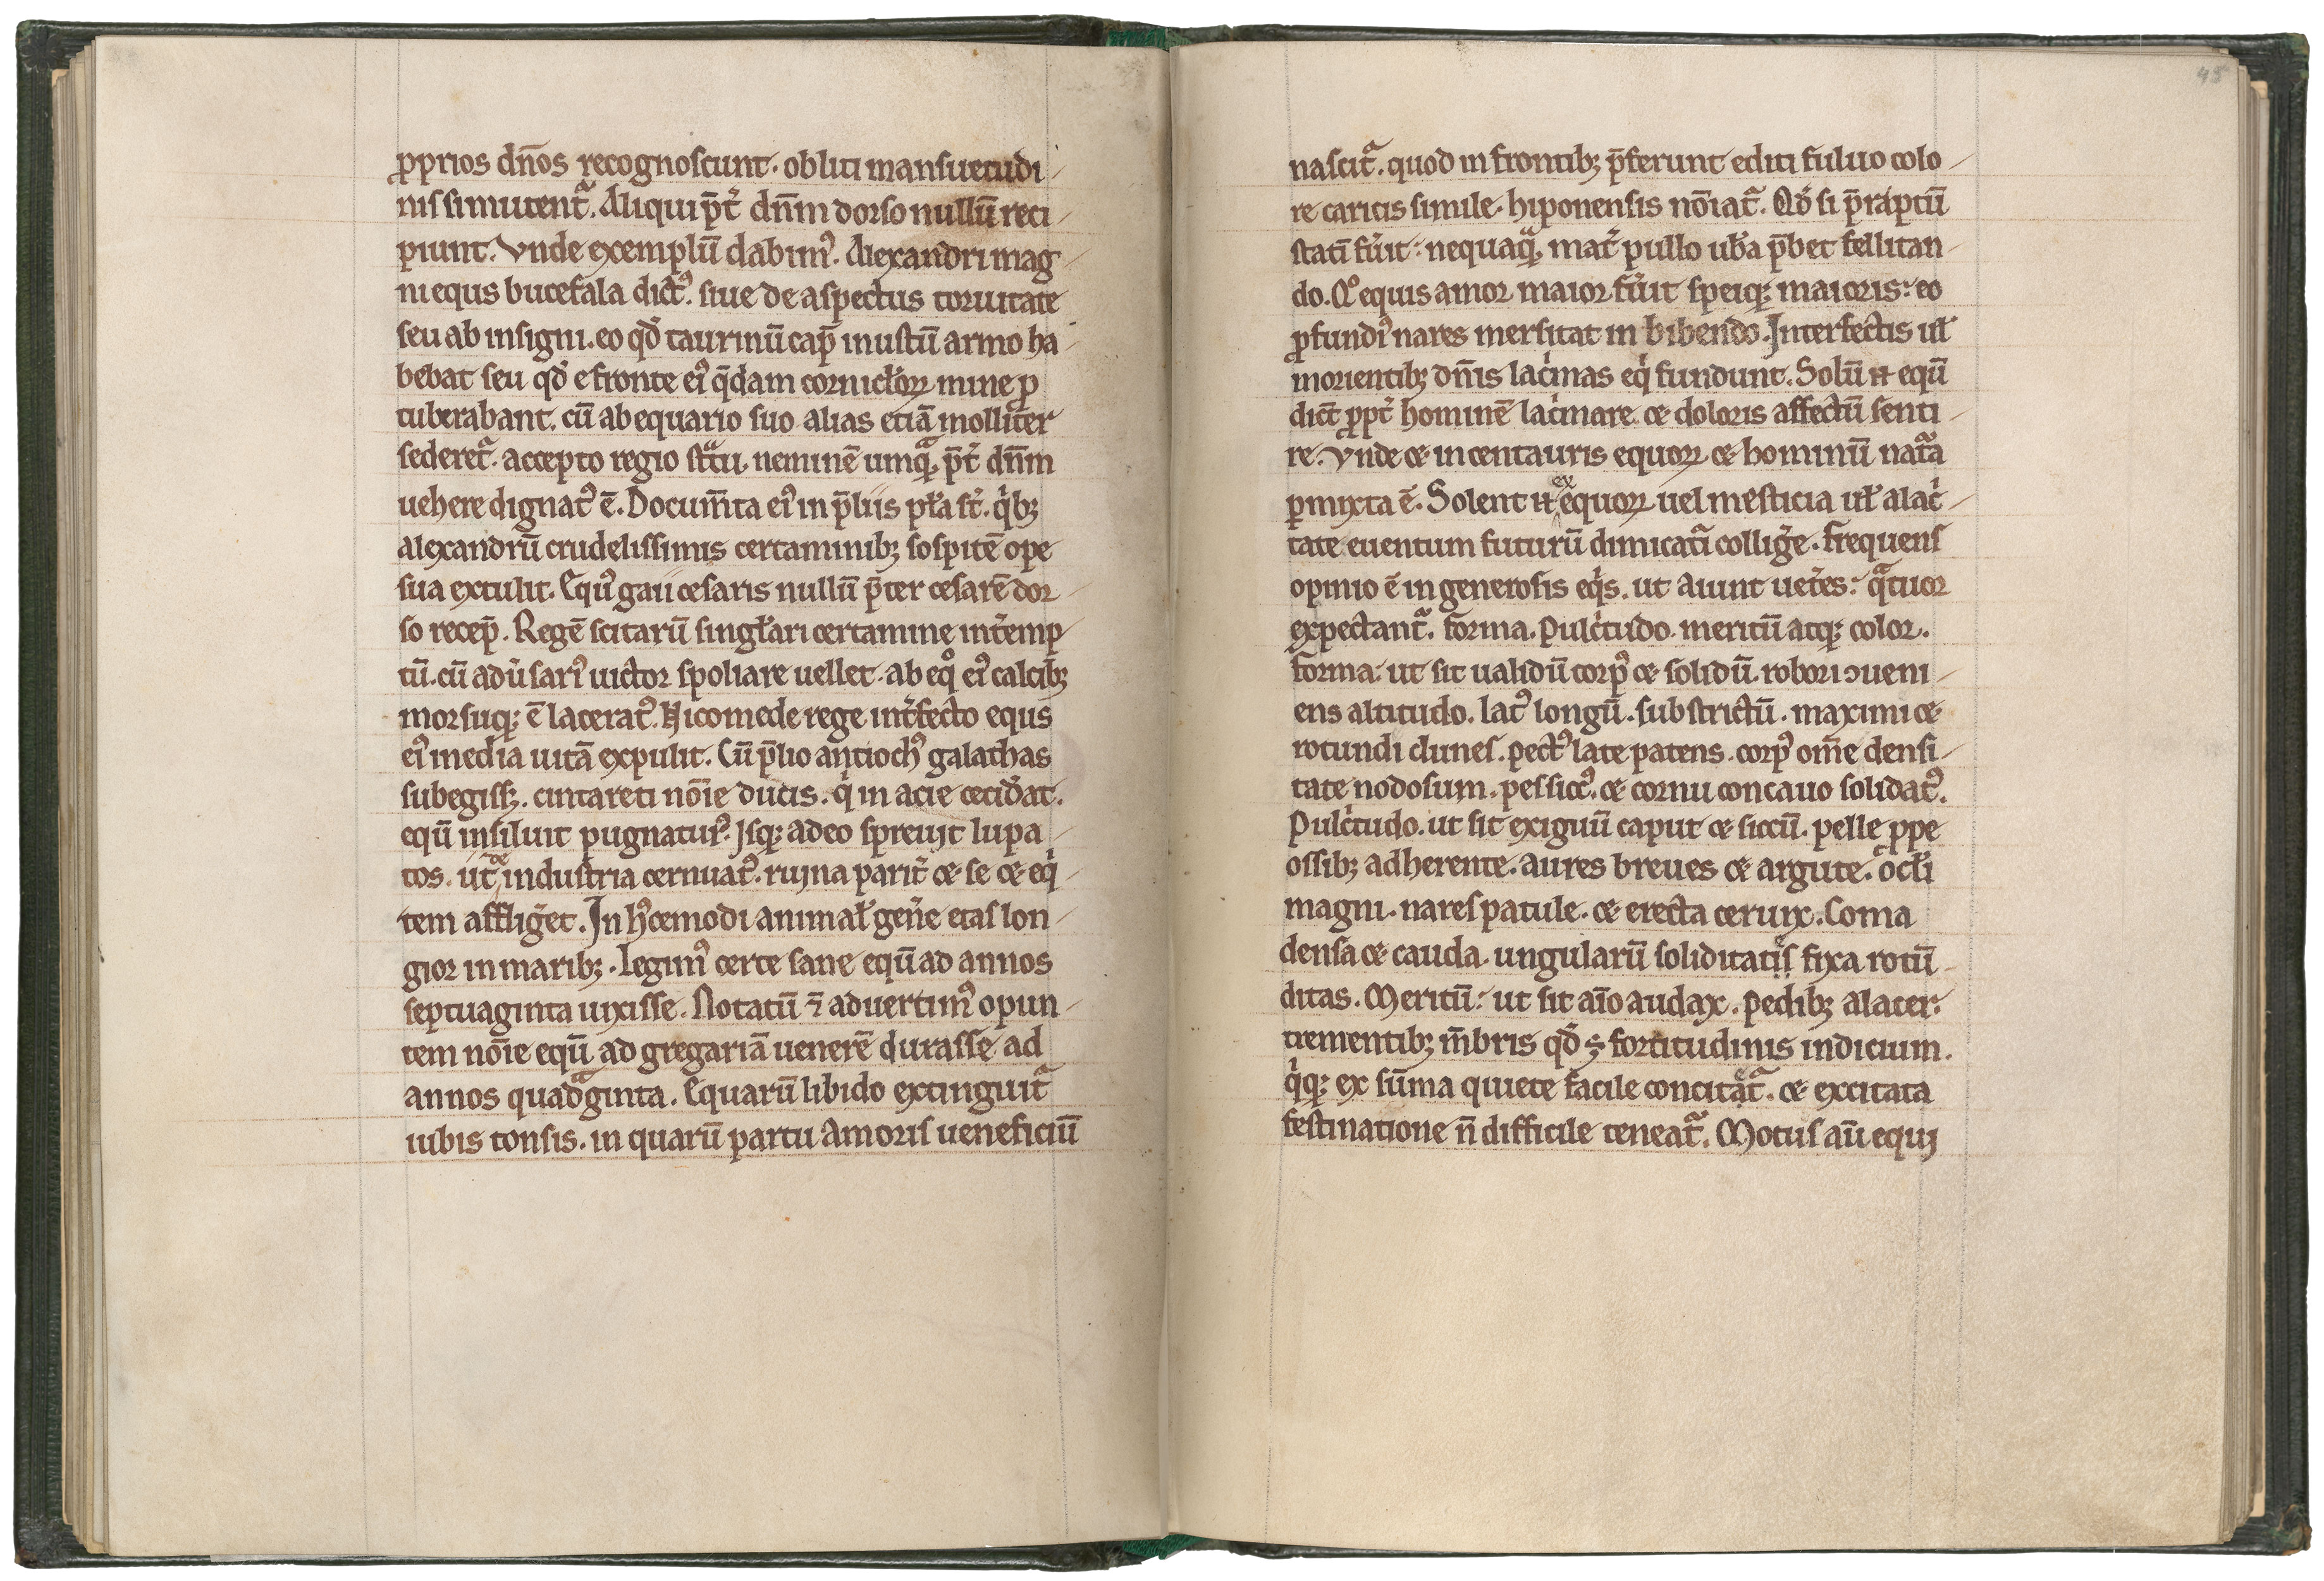 ꝓprios dn̄os recognoscunt. obliti mansuetudi
nis si mutentᷓ. Aliqui p̄t᷑ dn̄m dorso nullū reci
piunt. Vnde exemplū dabimꝰ. Alexandri mag
ni equs bucefala dictꝰ. siue de aspectus toruitate
seu ab insigni. eo qđ taurinū cap̄ inustū armo ha
bebat seu qđ e fronte eiꝰ q̄dam cornicłoꝝ mine ꝓ
tuberabant. cū ab equario suo alias etiā molliter
sederetᷓ. accepto regio stᷓtu. neminē umqᷓ, p̄t᷑ dn̄m
uehere dignatꝰ ē. Docum̄ta eiꝰ in p̄liis pła st᷑. qͥbꝫ
alexandrū crudelissimis certaminibꝫ sospitē ope
sua extulit. Equꝰ gaii cesaris nullū p̄ter cesarē dor
so recep̄. Regē scitarū singłari certamine int᷑emp
tū. cū adu᷑sariꝰ uictor spoliare uellet. ab eqͦ eiꝰ calcibꝫ
morsuqꝫ ē laceratꝰ. Nicomede rege int᷑fecto equs
eiꝰ media uitā expulit. Cū p̄lio antiochꝰ galathas
subegissꝫ. cintareti noīe ducis. qͥ in acie cecid᷑at.
equū insiluit pugnaturꝰ. Isqꝫ adeo spreuit lupa
tos. ut᷑ ex industria cernuatꝰ. ruina parit᷑ ⁊ se ⁊ eqͥ
tem afflig᷑et. In hꝰcemodi animał gen᷑e etas lon
gior in maribꝫ. Legimꝰ certe sane equū ad annos
septuaginta uixisse. Notatū ⁊̄ aduertimꝰ opun
tem noīe equū ad gregariā uenerē durasse ad
annos quadᷓginta. Equarū libido extinguitᷓ
iubis tonsis. in quarū partu amoris ueneficiū
45
nascitᷓ. quod in frontibꝫ p̄ferunt editi fuluo colo
re caricis simile. hiponensis noīatᷓ. Qđ si p̄raptū
statī fu᷑it: nequaqᷓ, mat᷑ pullo ub᷑a p̄bet fellitan
do. Qͦ equis amor maior fu᷑it speiqꝫ maioris: eo
ꝓfundiꝰ nares mersitat in bibendo. Interfectis uł
morientibꝫ dn̄is lacͥmas eqͥ fundunt. Solū n̄ equū
dic̄t ꝓpt᷑ hominē lacͥmare ⁊ doloris affectū senti
re. Vnde ⁊ in centauris equoꝝ ⁊ hominū natᷓa
ꝑmixta ē. Solent n̄ ex equoꝝ uel mesticia uł alacͥ
tate euentum futurū dimicatᷓi collig᷑e. Frequens
opinio ē in generosis eqͥs. ut aiunt uet᷑es: qᷓtuor
expectantᷓ. forma. Pulcͥtudo. meritū atqꝫ color.
forma: ut sit ualidū corpꝰ ⁊ solidū. robori ↄueni
ens altitudo. latꝰ longū. substrictū. maximi ⁊
rotundi clunes. pectꝰ late patens. corpꝰ om̄e densi
tate nodosum. pes siccꝰ. ⁊ cornu concauo solidatꝰ.
Pulcͥtudo. ut sit exiguū caput ⁊ siccū. pelle ꝓpe
ossibꝫ adherente. aures breues ⁊ argute. ocłi
magni. nares patule. ⁊ erecta ceruix. Coma
densa ⁊ cauda. ungularū soliditatis fixa rotū
ditas. Meritū: ut sit aīo audax. pedibꝫ alacer.
trementibꝫ m̄bris qđ ꝫ fortitudinis indicium.
qͥqꝫ ex sūma quiete facile concitetᷓ. ⁊ excitata
festinatione n̄ difficile teneatᷓ. Motus aū equi